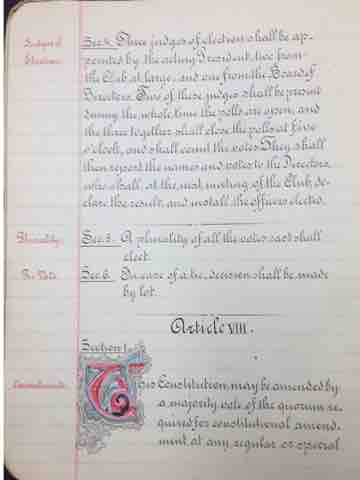 Judges of
Election.
Sec. 4. Three judges of election shall be ap-
pointed by the acting President, two from
the Club at large, and one from the Board of
Directors. Two of these judges shall be present
during the whole time the polls are open, and
the three together shall close the polls at five
o'clock, and shall count the votes. They shall
then report the names and votes to the Directors,
who shall, at the next meeting of the Club, de-
clare the result, and install the officers elected.
Plurality.
Sec. 5. A plurality of all the votes cast shall
elect.
Tie Vote.
Sec. 6. In case of a tie, decision shall be made
by lot.
Article VIII.
Section 1.
Amendments.
This Constitution may be amended by
a majority vote of the quorum re-
quired for constitutional amend-
ment at any regular or special